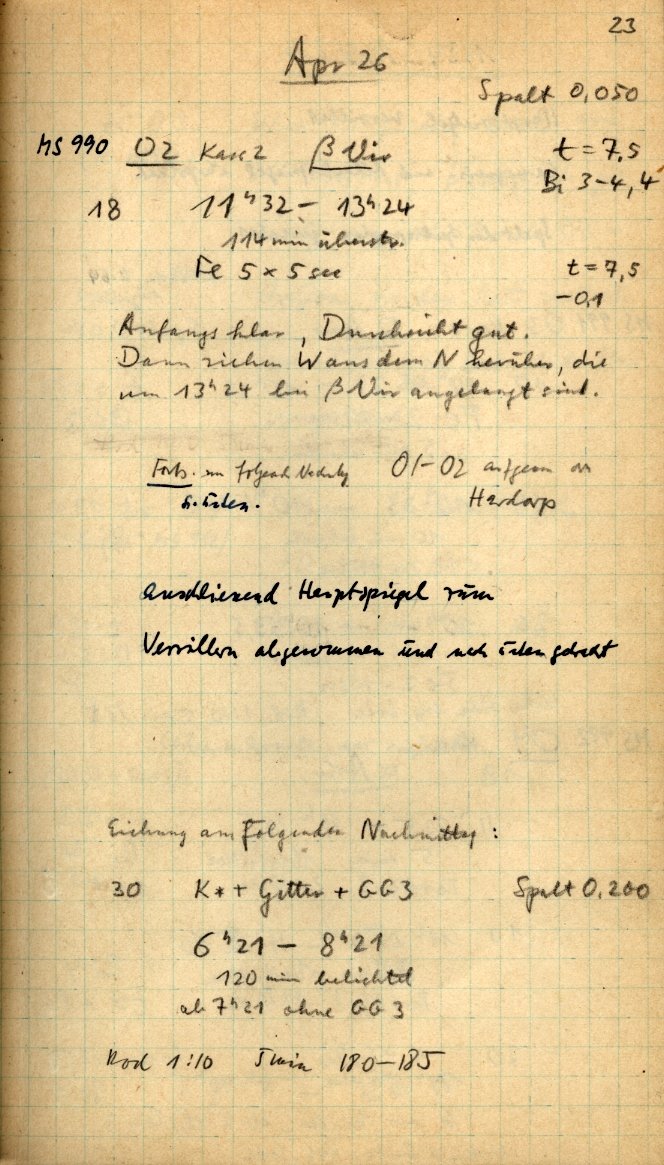 23
Apr 26
Spalt 0,050
MS 990 O2 Kass 2 β Vir t = 7,5
Bi 3-4, 4
18 11ʰ32 - 13ʰ24
114 min überstr.
Fe 5 × 5 sec t = 7,5
-0,1
Anfangs klar, Durchsicht gut.
Dann ziehen W aus dem N herüber, die
um 13ʰ24 bei β Vir angelangt sind.
Forts. am folgend O1-O2 aufgenn
s. unten. Hardorp
anschliessend Hauptspiegel zum
Versilbern abgenommen und nach unten gebracht
Eichung am folgenden Nachmittag:
30 K* + Gitter + GG3 Spalt 0,200
6ʰ21 - 8ʰ21
120 min belichtet
ab 7ʰ21 ohne GG 3
Rod 1:10 5 min 180-185